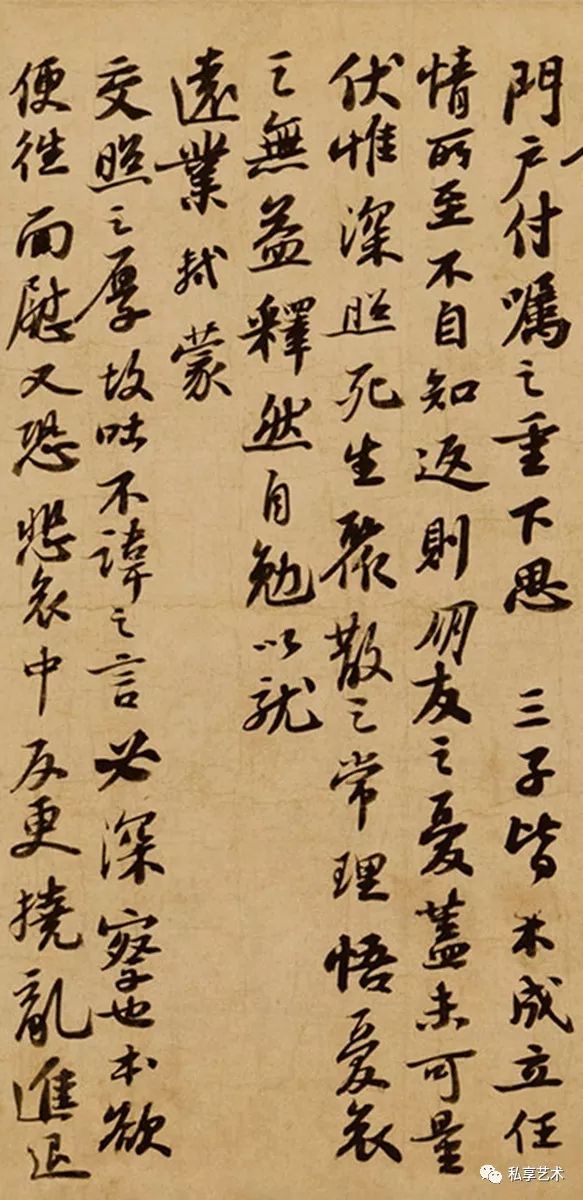 門戶付囑之重下思 三子皆未成立任
情所至不自知返則朋友之憂蓋未可量
伏惟深照死生聚散之常理悟憂哀
之無益釋然自勉以就
遠業軾蒙
交照之厚故吐不諱之言必深察也本欲
便往面慰又恐悲哀中反更撓亂進退
私享艺术